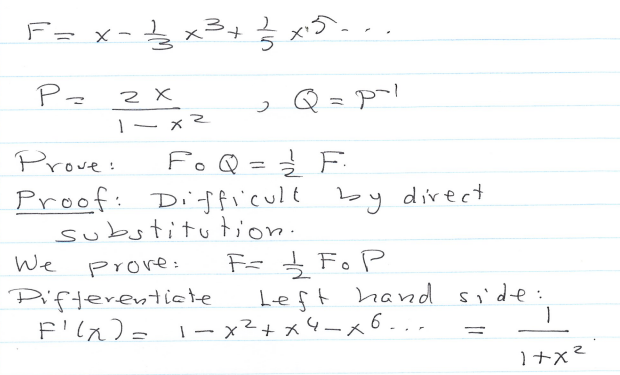 F = x - 1/3 x³ + 1/5 x⁵ . . .
P = 2x / (1 - x²) , Q = P⁻¹
Prove: F ∘ Q = 1/2 F.
Proof: Difficult by direct
substitution.
We prove: F = 1/2 F ∘ P
Differentiate Left hand side:
F'(x) = 1 - x² + x⁴ - x⁶ ... = 1 / (1 + x²).